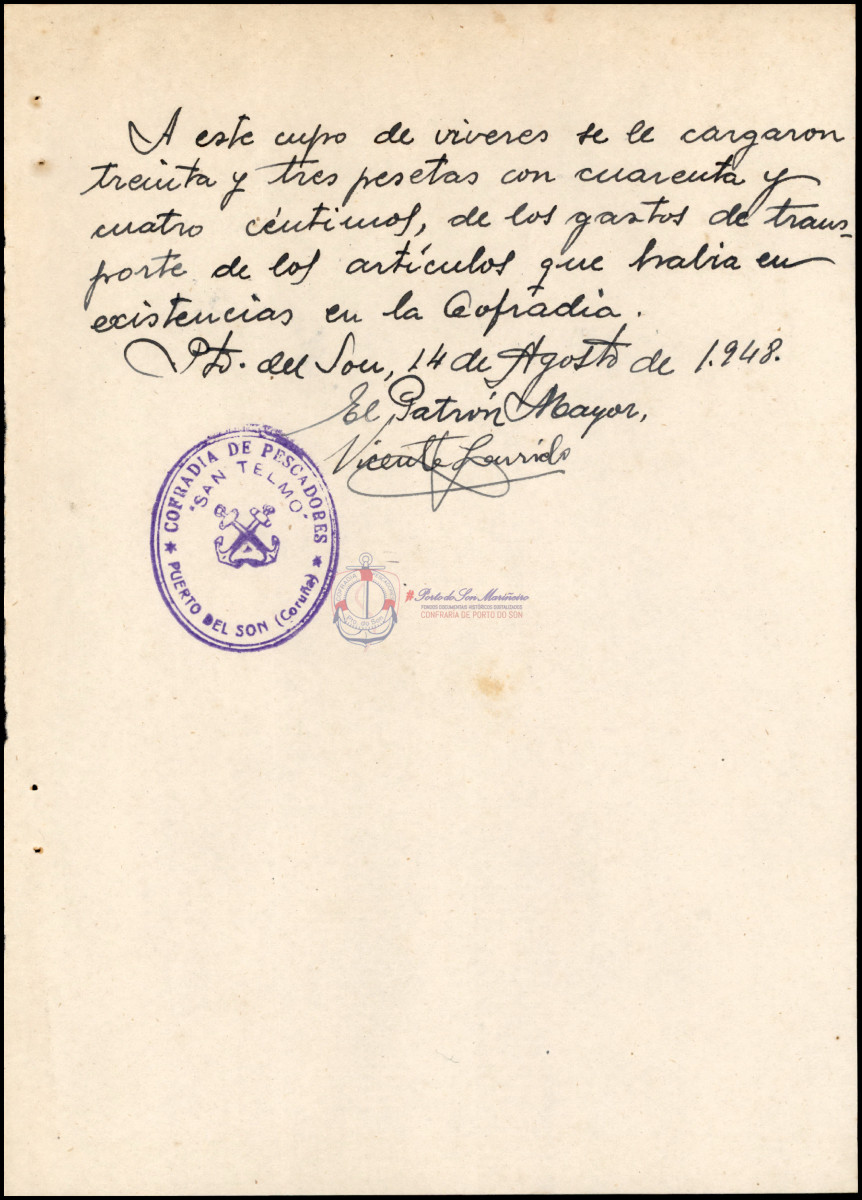 A este cupo de viveres se le cargaron
treinta y tres pesetas con cuarenta y
cuatro céntimos, de los gastos de trans-
porte de los artículos que habia en
existencias en la Cofradia.
Pto. del Son, 14 de Agosto de 1.948.
El Patrón Mayor,
Vicente
COFRADIA DE PESCADORES
"SAN TELMO"
PUERTO DEL SON (Coruña)
#Porto do Son Mariñeiro
FONDOS DOCUMENTAIS HISTÓRICOS DIXITALIZADOS
CONFRARIA DE PORTO DO SON
Pto. do Son